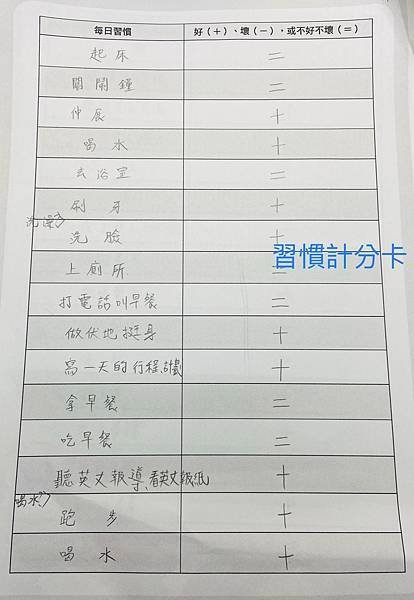 每日習慣 好(+)、壞(-)，或不好不壞(=)
起床 =
關鬧鐘 =
伸展 +
喝水 +
去浴室 =
刷牙 +
洗澡
洗臉 +
習慣計分卡
上廁所 =
打電話叫早餐 =
做伏地挺身 +
寫一天的行程、計劃 +
拿早餐 =
吃早餐 =
聽英文報導、看英文報紙 +
喝水
跑步 +
喝水 +